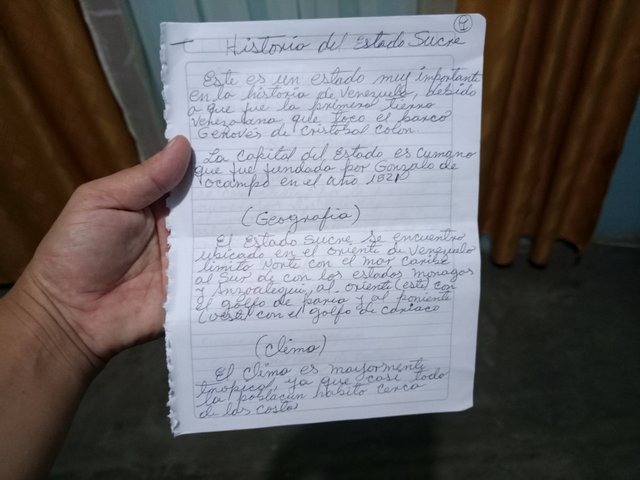 9
Historia del Estado Sucre
Este es un estado muy importante
en la historia de Venezuela, debido
a que fue la primera tierra
Venezolana que toco el barco
Genoves de Cristobal Colon.
La capital del Estado es Cumana
que fue fundada por Gonzalo de
Ocampo en el año 1521
(Geografia)
El Estado Sucre se encuentra
ubicado en el oriente de Venezuela
limita norte con el mar caribe
al Sur de con los estados monagas
y Anzoategui, al oriente (este) con
el golfo de paria y al poniente
(oeste) con el golfo de cariaco
(Clima)
El Clima es mayormente
tropical, ya que casi todo
la poblacion habita cerca
de las costas